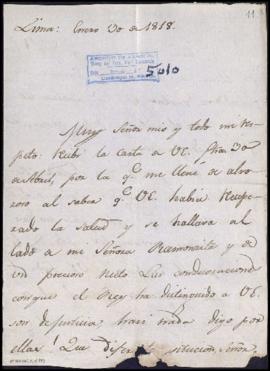 Lima: Enero 30 de 1818.
11
5010
Muy Señor mio y todo mi res-
peto. Recibi la carta de VE. fha 30
de Abril, por la q.e me llené de albo-
rozo al saber q.e VE. habia recupe-
rado la salud y se hallava al
lado de mi Señora Ramoncita y de
un precioso Nieto. Las condecoraciones
con que el Rey ha distinguido a VE.
son de justicia, nada digo por
ellas! Que diferente situacion, Señor,